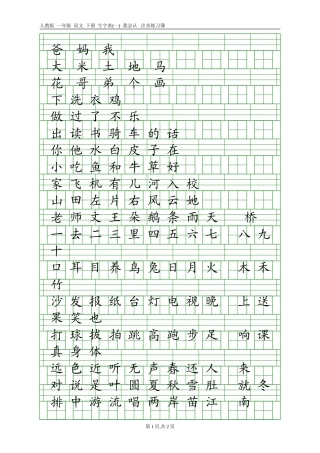 人教版 一年级 语文 下册 生字表(一) 我会认 注音练习簿
爸 妈 我
大 米 土 地 马
花 哥 弟 个 画
下 洗 衣 鸡
出 读 书 骑 车 的 话
你 他 水 白 皮 子 在
小 吃 鱼 和 牛 草 好
家 飞 机 有 儿 河 入 校
山 田 左 片 右 风 云 她
老 师 文 王 朵 鹅 条 雨 天 桥
一 去 二 三 里 四 五 六 七 八 九
十
口 耳 目 养 鸟 兔 日 月 火 木 禾
竹
沙 发 报 纸 台 灯 电 视 晚 上 送
果 笑 也
打 球 拔 拍 跳 高 跑 步 足 响 课
真 身 体
远 色 近 听 无 声 春 还 人 来
对 说 是 叶 圆 夏 秋 雪 肚 就 冬
排 中 游 流 唱 两 岸 苗 江 南
第 1 页,共 2 页